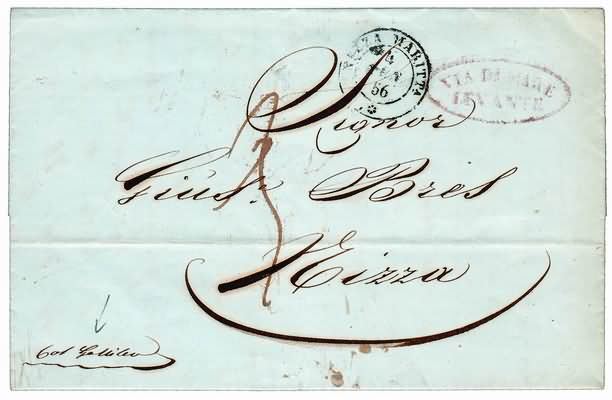 NIZZA MARITTA
56
VIA DI MARE
LEVANTE
Signor
Gius. Bres
Nizza
col Galileo